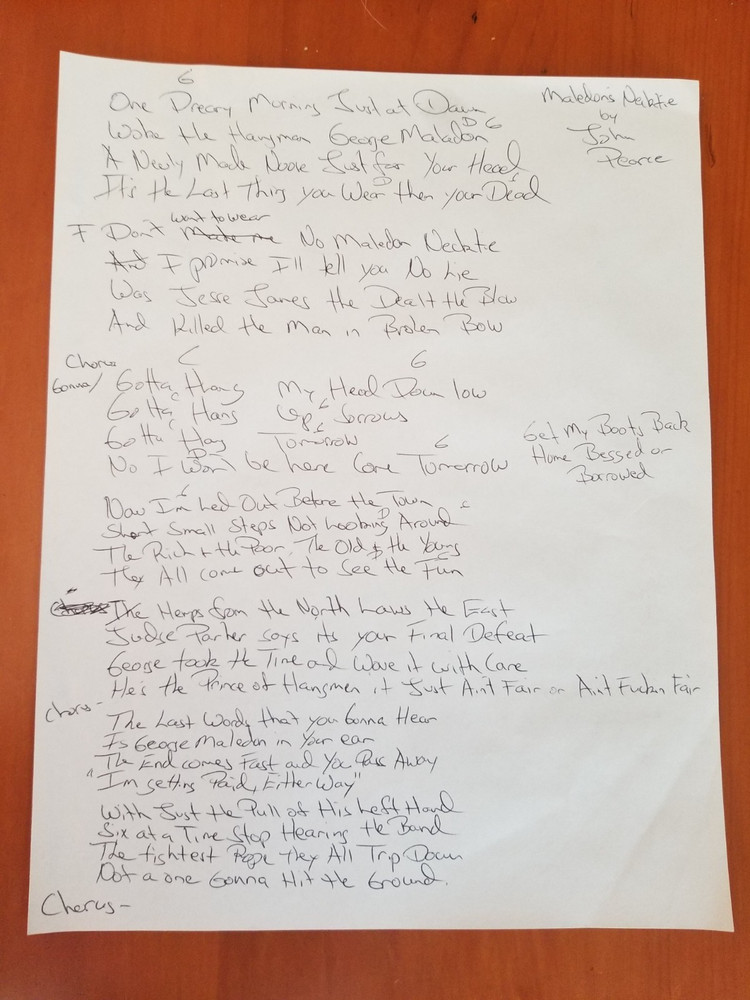 Maledon's Necktie
by
John
Pearce
G
One Dreary Morning Just at Dawn
D G
Woke the Hangman George Maledon
A Newly Made Noose Just for Your Head
D G
It's the Last Thing you Wear then your Dead
want to wear
I Don't Make me No Maledon Necktie
And I promise I'll tell you No Lie
Was Jesse James the Dealt the Blow
And Killed the Man in Broken Bow
Chorus C G
Gonna/ Gotta Hang My Head Down low
C G
Gotta Hang Up Sorrows
C G
Gotta Hang Tomorrow
D G
No I Won't be here Come Tomorrow
Get My Boots Back
Home Begged or
Borrowed
G
Now I'm Led Out Before the Town
D G
Short Small Steps Not Looking Around
The Rich & the Poor, The Old & the Young
D G
They All come out to See the Fun
The Hemps from the North Laws the East
Judge Parker says its your Final Defeat
George took the Time and Wove it with Care
He's the Prince of Hangmen it Just Ain't Fair or Ain't Fuckn Fair
Chorus-
The Last Words that you Gonna Hear
Is George Maledon in Your ear
The End comes Fast and You Pass Away
"I'm getting Paid, Either Way"
With Just the Pull of His Left Hand
Six at a Time Stop Hearing the Band
The tightest Rope they All Trip Down
Not a one Gonna Hit the Ground.
Chorus-